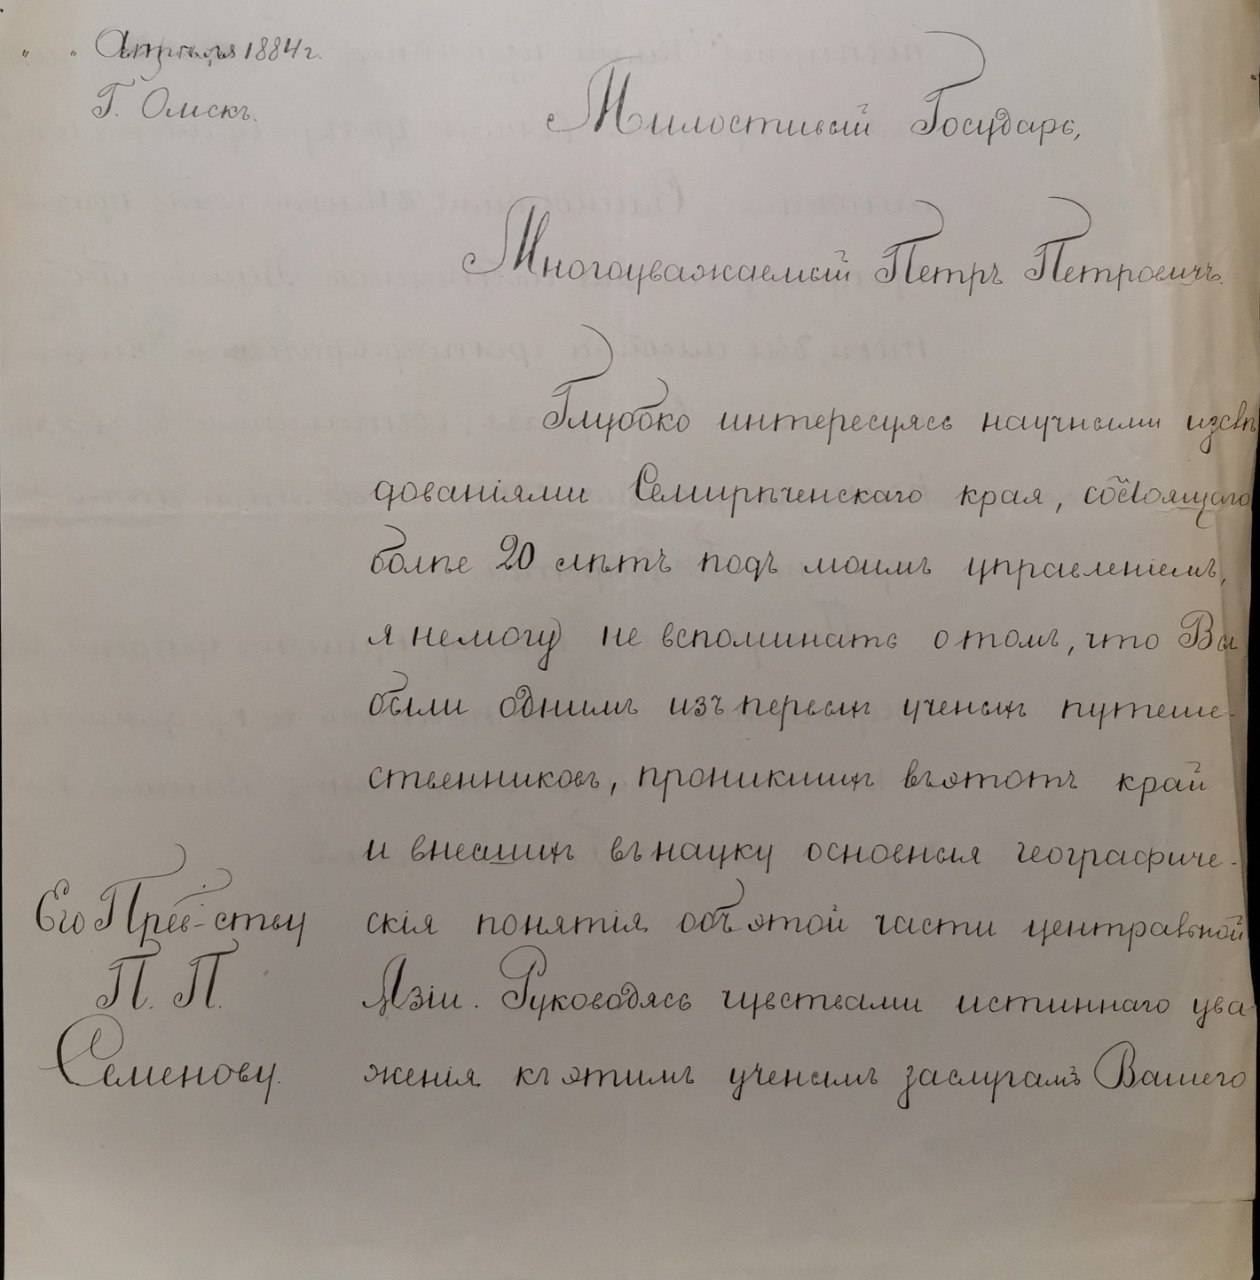 " " Апрѣля 1884 г.
Г. Омскъ.
Милостивый Государь,
Многоуважаемый Петръ Петровичъ.
Глубоко интересуясь научными изслѣ
дованіями Семирѣченскаго края, состоящаго
болѣе 20 лѣтъ подъ моимъ управленіемъ,
я немогу не вспоминать о томъ, что Вы
были однимъ изъ первыхъ ученыхъ путеше-
ственниковъ, проникшихъ въ этотъ край
и внесшихъ въ науку основныя географиче-
скія понятія объ этой части центральной
Азіи. Руководясь чувствами истиннаго ува
женія къ этимъ ученымъ заслугамъ Вашего
Его Прев-ству
П. П.
Семенову.